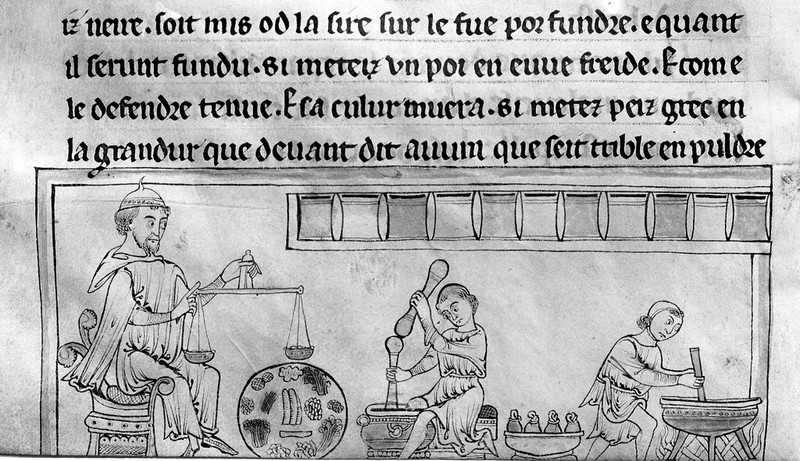 neire. soit mis od la sire sur le fue por fundre. e quant
il serunt fundu. si metez vn poi en euue freide. E come
le defendre tenue. E sa culur muera. si metez peiz grec en
la grandur que deuant dit auum que seit trible en puldre